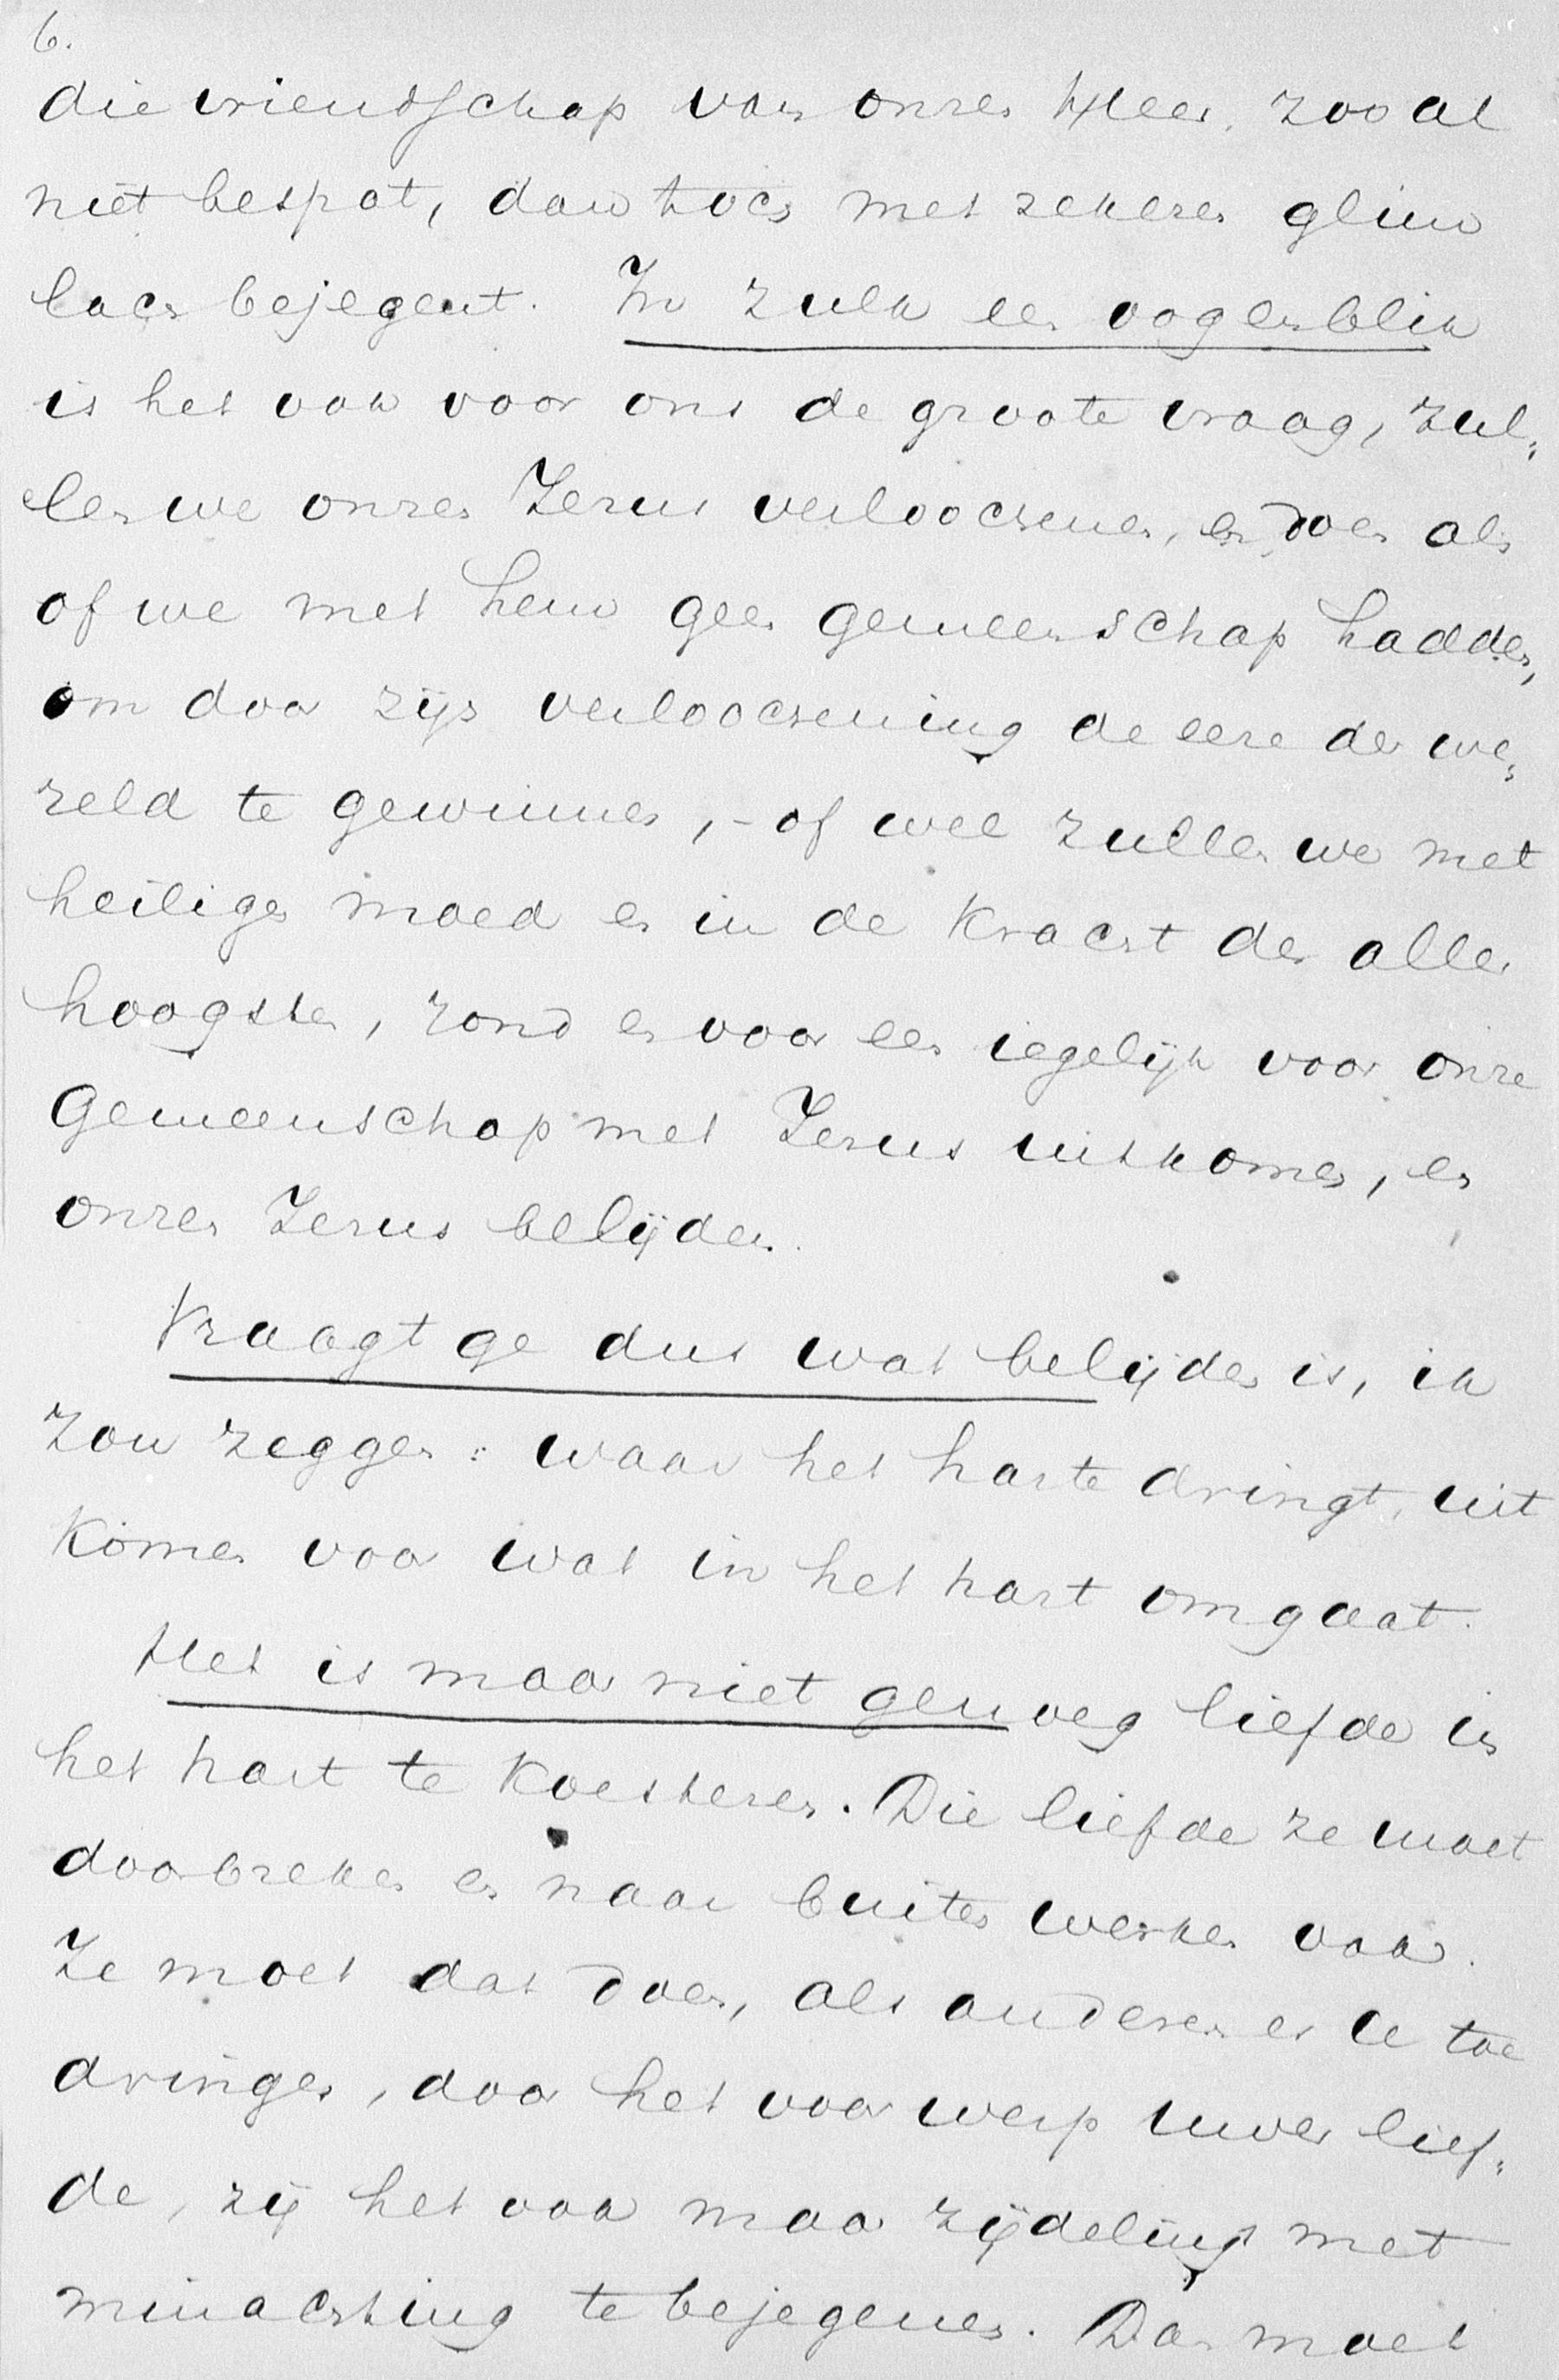 6.
die vriendschap van onzen Heer, zoo al
niet bespot, dan toch met zekeren glim
lach bejegent. In zulk een oogenblik
is het ook voor ons de groote vraag, zul,,
len we onzen Jezus verloochenen, en doen als
of we met hem geen gemeenschap hadden,
om door zijn verloochening de eere der we,,
reld te gewinnen, - of wel zullen we met
heiligen moed en in de kracht des aller
hoogsten, rond en voor een iegelijk voor onze
Gemeenschap met Jezus uitkomen, en
onzen Jezus belijden.
Vraagt ge dus wat belijden is, ik
zou zeggen: waar het harte dringt, uit
komen voor wat in het hart omgaat.
Het is maar niet genoeg liefde in
het hart te koesteren. Die liefde ze moet
doorbreken en naar buiten werken ook.
Ze moet dat doen, als anderen er U toe
dringen, door het voorwerp uwer lief,,
de, zij het ook maar zijdelings met
minachting te bejegenen. Dan moet